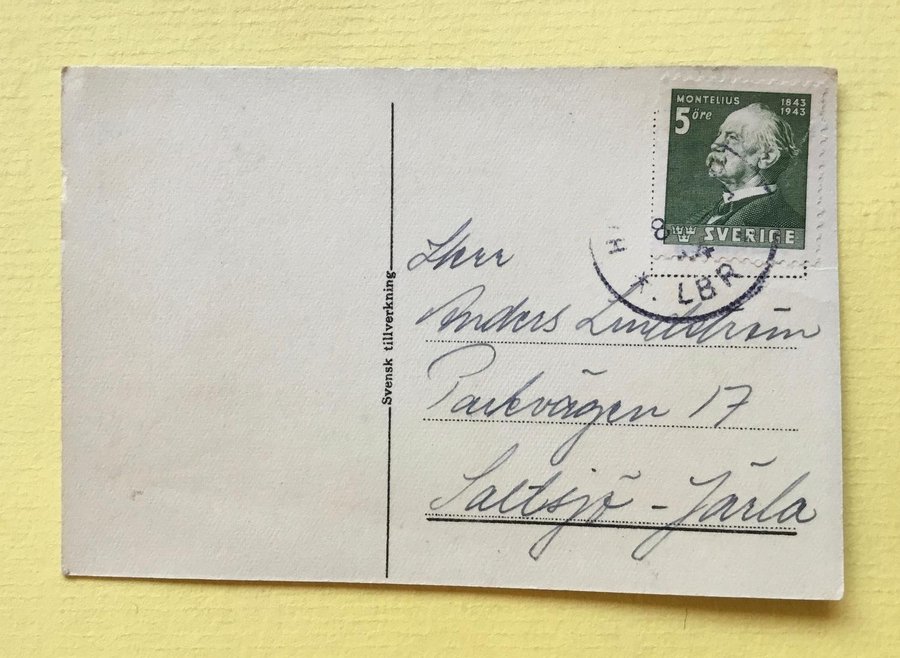 MONTELIUS 1843
1943
5 öre
SVERIGE
H 8
*. LBR
Svensk tillverkning
Herr
Anders Lindström
Parkvägen 17
Saltsjö-Järla